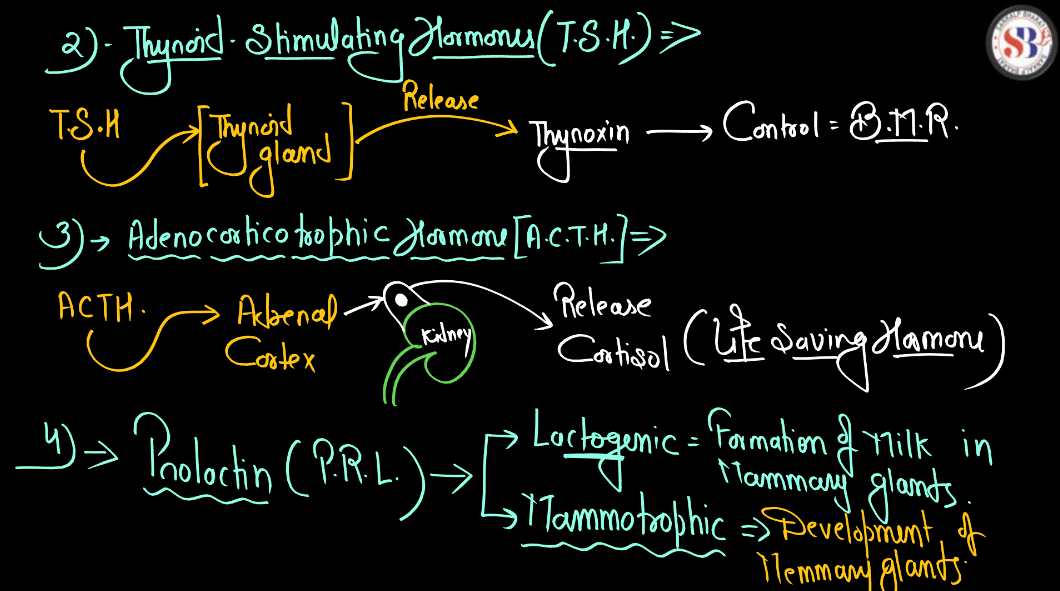 2)- Thynoid-Stimulating Hormones (T.S.H.) =>
Release
T.S.H → [Thynoid gland] → Thynoxin → Control = B.M.R.
3) → Adenocorticotrophic Hormone [A.C.T.H.] =>
ACTH. → Adrenal Cortex → Kidney → Release Cortisol (Life Saving Hormone)
4) → Prolactin (P.R.L.) →
→ Lactogenic = Formation of Milk in
Mammary glants.
→ Mammotrophic => Development of
Memmary glants.
SB